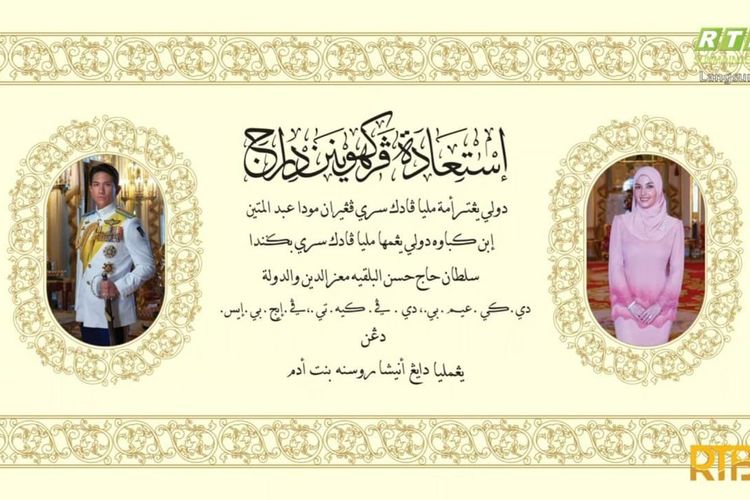 RTB
Langsung
إستعادة ڤركهوينن دراج
دولي يڠتر أمة مليا ڤادك سري ڤڠيران مودا عبد المتين
إبن كباوه دولي يڠمها مليا ڤادك سري بڬندا
سلطان حاج حسن البلقيه معزالدين والدولة
دي . كي . عيم . بي ،، دي . ڤي . كيه . تي ،، ڤي . إيج . بي . إيس .
دڠن
يڠمليا دايڠ أنيشا روسنه بنت أدم
RTB